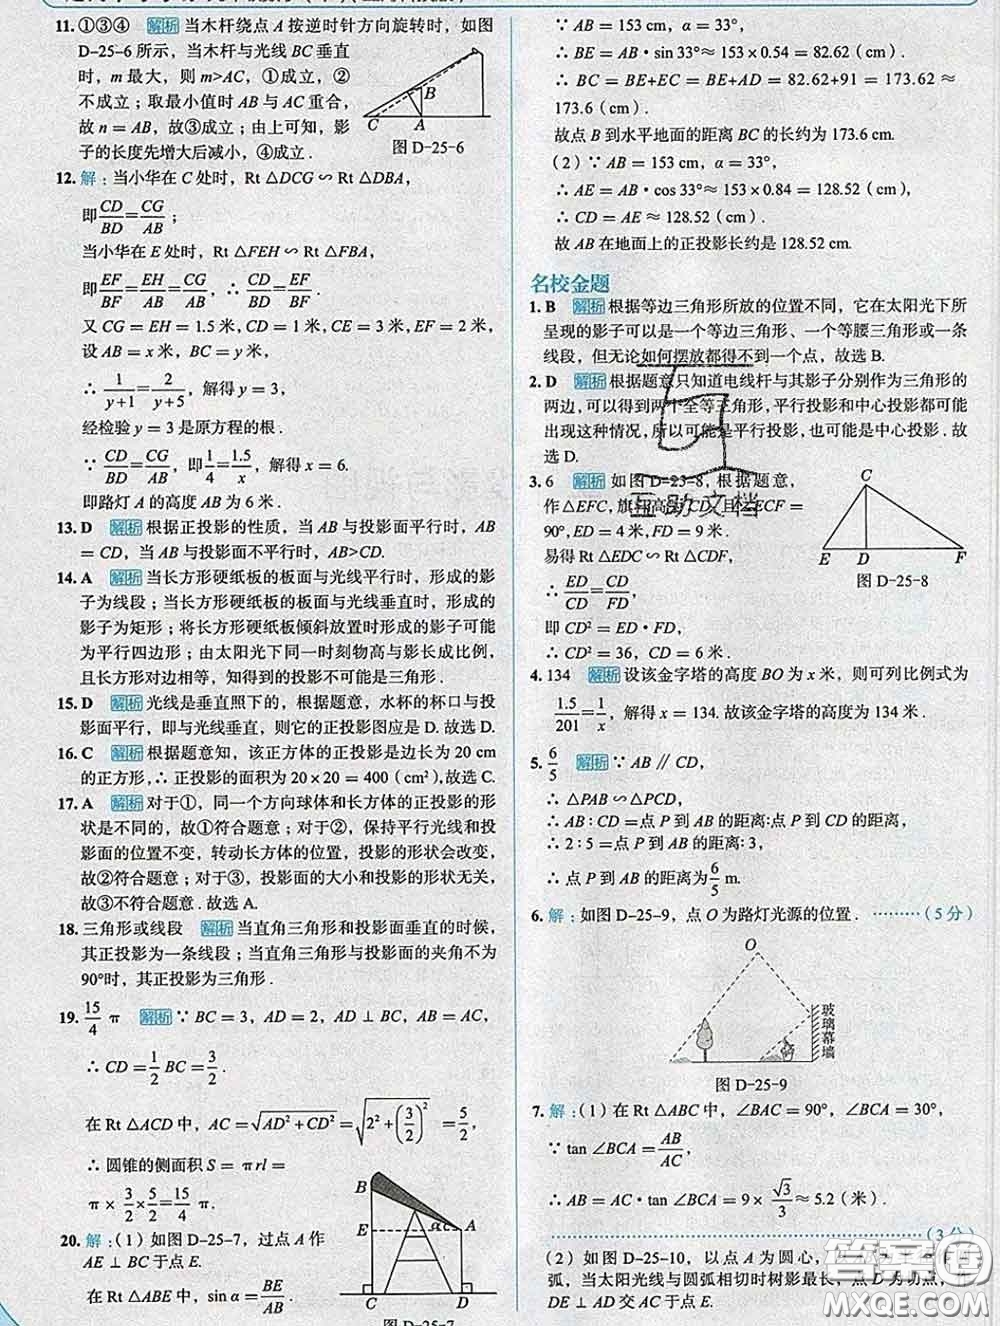 11. ①③④ 解析 当木杆绕点 A 按逆时针方向旋转时，如图
D-25-6 所示，当木杆与光线 BC 垂直
时，m 最大，则 m>AC，①成立，②
不成立；取最小值时 AB 与 AC 重合，
故 n = AB，故③成立；由上可知，影
子的长度先增大后减小，④成立．
B
C
A
图 D-25-6
12. 解：当小华在 C 处时，Rt △DCG ∽ Rt △DBA，
即 CD/BD = CG/AB；
当小华在 E 处时，Rt △FEH ∽ Rt △FBA，
即 EF/BF = EH/AB = CG/AB，∴ CD/BD = EF/BF．
又 CG = EH = 1.5 米，CD = 1 米，CE = 3 米，EF = 2 米，
设 AB = x 米，BC = y 米，
∴ 1/(y+1) = 2/(y+5)，解得 y = 3，
经检验 y = 3 是原方程的根．
∵ CD/BD = CG/AB，即 1/4 = 1.5/x，解得 x = 6．
即路灯 A 的高度 AB 为 6 米．
13. D 解析 根据正投影的性质，当 AB 与投影面平行时，AB
= CD，当 AB 与投影面不平行时，AB>CD.
14. A 解析 当长方形硬纸板的板面与光线平行时，形成的影
子为线段；当长方形硬纸板的板面与光线垂直时，形成的
影子为矩形；将长方形硬纸板倾斜放置时形成的影子可能
为平行四边形；由太阳光下同一时刻物高与影长成比例，
且长方形对边相等，知得到的投影不可能是三角形．
15. D 解析 光线是垂直照下的，根据题意，水杯的杯口与投
影面平行，即与光线垂直，则它的正投影图应是 D. 故选 D.
16. C 解析 根据题意知，该正方体的正投影是边长为 20 cm
的正方形，∴ 正投影的面积为 20 × 20 = 400（cm²）．故选 C.
17. A 解析 对于①，同一个方向球体和长方体的正投影的形
状是不同的，故①符合题意；对于②，保持平行光线和投
影面的位置不变，转动长方体的位置，投影的形状会改变，
故②符合题意；对于③，投影面的大小和投影的形状无关，
故③不符合题意．故选 A.
18. 三角形或线段 解析 当直角三角形和投影面垂直的时候，
其正投影为一条线段；当直角三角形与投影面的夹角不为
90°时，其正投影为三角形．
19. 15/4 π 解析 ∵ BC = 3，AD = 2，AD ⊥ BC，AB = AC，
∴ CD = 1/2 BC = 3/2．
在 Rt △ACD 中，AC = √(AD² + CD²) = √(2² + (3/2)²) = 5/2，
∴ 圆锥的侧面积 S = πrl =
π × 3/2 × 5/2 = 15/4 π．
20. 解：（1）如图 D-25-7，过点 A 作
AE ⊥ BC 于点 E.
在 Rt △ABE 中，sin α = BE/AB．
B
E
α
A
C
D
图 D-25-7
∵ AB = 153 cm，α = 33°，
∴ BE = AB · sin 33° ≈ 153 × 0.54 = 82.62（cm）．
∴ BC = BE+EC = BE+AD = 82.62+91 = 173.62 ≈
173.6（cm）．
故点 B 到水平地面的距离 BC 的长约为 173.6 cm.
（2）∵ AB = 153 cm，α = 33°，
∴ AE = AB · cos 33° ≈ 153 × 0.84 = 128.52（cm）．
∴ CD = AE ≈ 128.52（cm）．
故 AB 在地面上的正投影长约是 128.52 cm.
名校金题
1. B 解析 根据等边三角形所放的位置不同，它在太阳光下所
呈现的影子可以是一个等边三角形、一个等腰三角形或一条
线段，但无论如何摆放都得不到一个点，故选 B.
2. D 解析 根据题意只知道电线杆与其影子分别作为三角形的
两边，可以得到两个全等三角形，平行投影和中心投影都可能
出现这种情况，所以可能是平行投影，也可能是中心投影．故
选 D.
3. 6 解析 如图 D-25-8，根据题意，
作 △EFC，旗杆高为 CD，且 ∠ECF =
90°，ED = 4 米，FD = 9 米．
易得 Rt △EDC ∽ Rt △CDF，
∴ ED/CD = CD/FD，
即 CD² = ED · FD，
∴ CD² = 36，CD = 6 米．
C
E
D
F
图 D-25-8
4. 134 解析 设该金字塔的高度 BO 为 x 米，则可列比例式为
1.5/201 = 1/x，解得 x = 134. 故该金字塔的高度为 134 米．
5. 6/5 解析 ∵ AB ∥ CD，
∴ △PAB ∽ △PCD，
∴ AB∶CD = 点 P 到 AB 的距离∶点 P 到 CD 的距离，
∴ 2∶5 = 点 P 到 AB 的距离∶3，
∴ 点 P 到 AB 的距离为 6/5 m.
6. 解：如图 D-25-9，点 O 为路灯光源的位置．………（5 分）
O
玻璃幕墙
图 D-25-9
7. 解：（1）在 Rt △ABC 中，∠BAC = 90°，∠BCA = 30°，
∵ tan ∠BCA = AB/AC，
∴ AB = AC · tan ∠BCA = 9 × √3/3 ≈ 5.2（米）．
………（3 分）
（2）如图 D-25-10，以点 A 为圆心，
弧，当太阳光线与圆弧相切时树影最长，点 D 为切点，作
DE ⊥ AD 交 AC 于点 E.
互助文档
答案圈
MXQE.COM